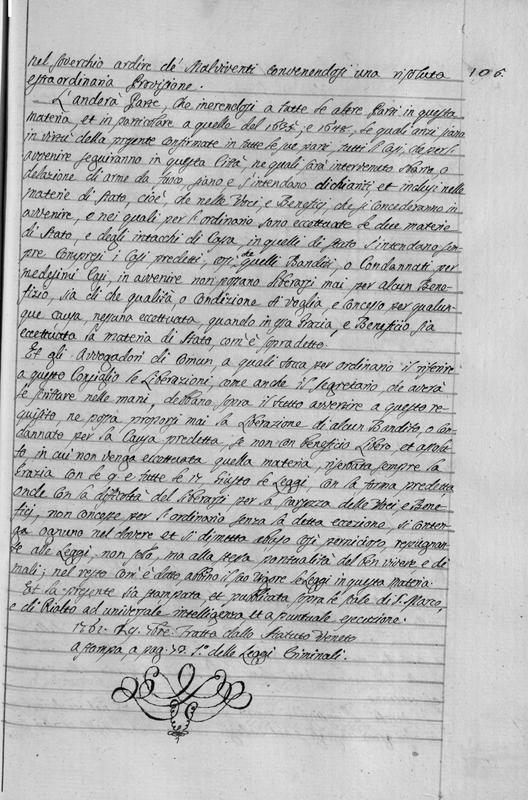 106.
nel soverchio ardire de' Malviventi convenendosi una risoluta
estraordinaria Provisione.
L'anderà Parte, che inerendosi a tutte le altre Parti in questa
materia, et in particolare a quelle del 1635; e 1648, le quali anzi siano
in virtù della presente confirmate in tutte le sue parti, tutti i Casi, che per l'
avvenire seguiranno in questa Città, ne quali sarà intervenuto sbarro, o
delazione di arme da fuoco, siano e s'intendano dichiariti et inclusi nelle
materie di Stato, cioè, che nelle Voci, e Beneficj, che si concederanno in
avvenire, e nei quali per l'ordinario sono eccettuate le due materie
di Stato, e degli intacchi di Cassa, in quelle di stato s'intendano sem-
pre Compresi i Casi predetti, così che quelli Banditi, o Condannati per
medesimi Casi, in avvenire non possano liberarsi mai per alcun Bene-
fizio, sia di che qualità, o Condizione si voglia, e concesso per qualun-
que causa, nessuna eccettuata, quando in essa Grazia, e Beneficio sia
eccettuata la materia di Stato, com'è sopradetto.
Et gli Avvogadori di Comun, a quali tocca per ordinario il riferire
a questo Consiglio le Liberazioni, come anche il Segretario, che averà
le scritture nelle mani, debbano sopra il tutto avvertire a questo re-
quisito, ne possa proporsi mai la Liberazione di alcun Bandito, o Con-
dannato per la Causa predetta, se non con beneficio Libero, et assolu-
to, in cui non venga eccettuata quella materia, riservata sempre la
Grazia con le 9. e tutte le 17. giusto le Leggi. Con la forma predetta
onde con la difficoltà del liberarsi per la scarsezza delle Voci e Bene-
ficj, non concesse per l'ordinario senza la detta eccezione, si conten-
ga ognuno nel dovere et si dimetta abuso così pernicioso, repugnan-
te alle Leggi, non solo, ma alla stessa pontualità del ben vivere e de
mali; nel resto com'è detto, abbino il suo vigore le Leggi in questa materia.
Et la presente sia stampata, et pubblicata sopra le scale di S. Marco,
e di Rialto ad universale intelligenza et a puntuale esecuzione.
Tratta dallo Statuto Veneto
a stampa, a pag. delle Leggi Criminali.